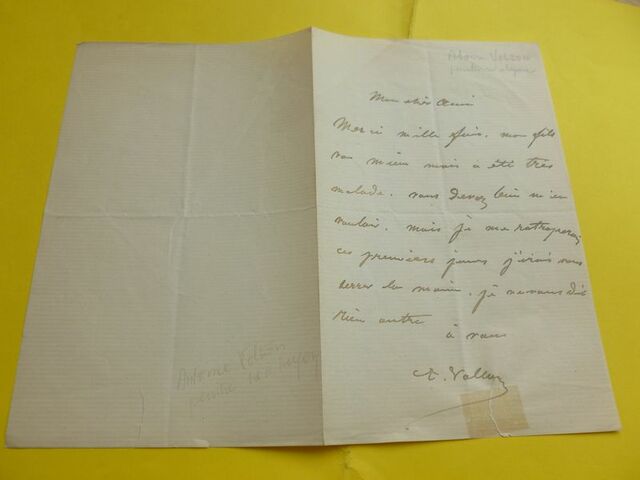 Antoine Vollon
peintre
Mon cher Ami
Merci mille fois. mon fils
vas mieux mais a été très
malade. vous devez bien m'en
vouloir. mais je me rattraperai
ces premiers jours j'irais vous
serrer la main. je ne vous dis
rien autre
à vous
A. Vollon
Antoine Vollon
peintre